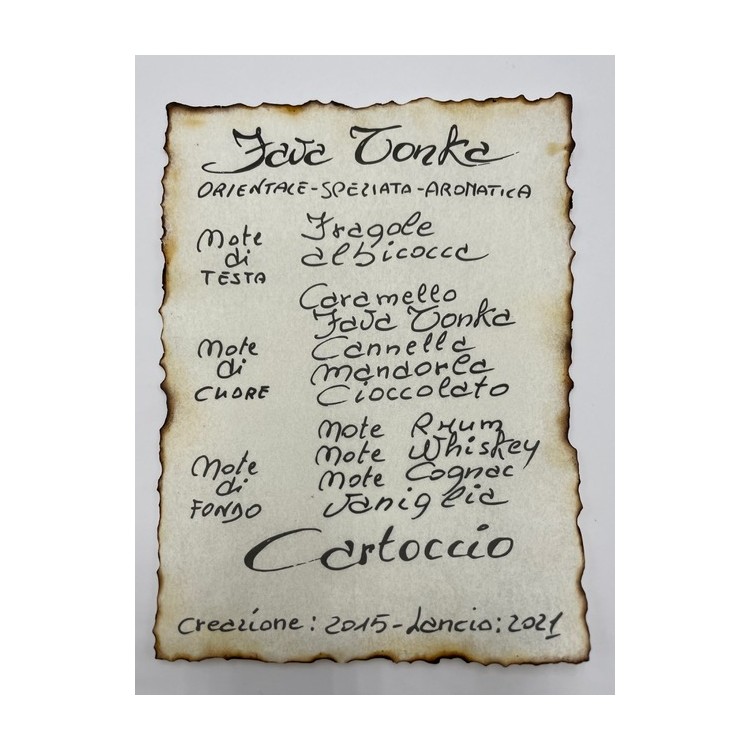 Fava Tonka
ORIENTALE-SPEZIATA-AROMATICA
Note
di
TESTA
Fragole
albicocca
Note
di
CUORE
Caramello
Fava Tonka
Cannella
mandorla
Cioccolato
Note
di
FONDO
Note Rhum
Note Whiskey
Note Cognac
Vaniglia
Cartoccio
Creazione: 2015-Lancio: 2021